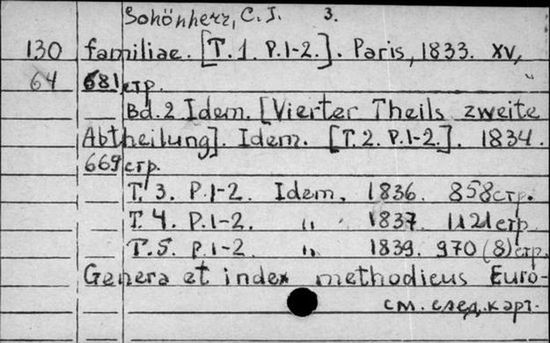 Schönherr, C. J. 3.
130 familiae. [T.1. P.1-2.]. Paris, 1833. XV,
64 681 стр.
Bd. 2 Idem. [Vierter Theils zweite
Abtheilung]. Idem. [T.2. P.1-2.]. 1834.
669 стр.
T. 3. P.1-2. Idem, 1836. 858 стр.
T. 4. P.1-2. " 1837. 1121 стр.
T. 5. P.1-2 " 1839. 970 (8) стр.
Genera et index methodicus Euro-
см. след. карт.